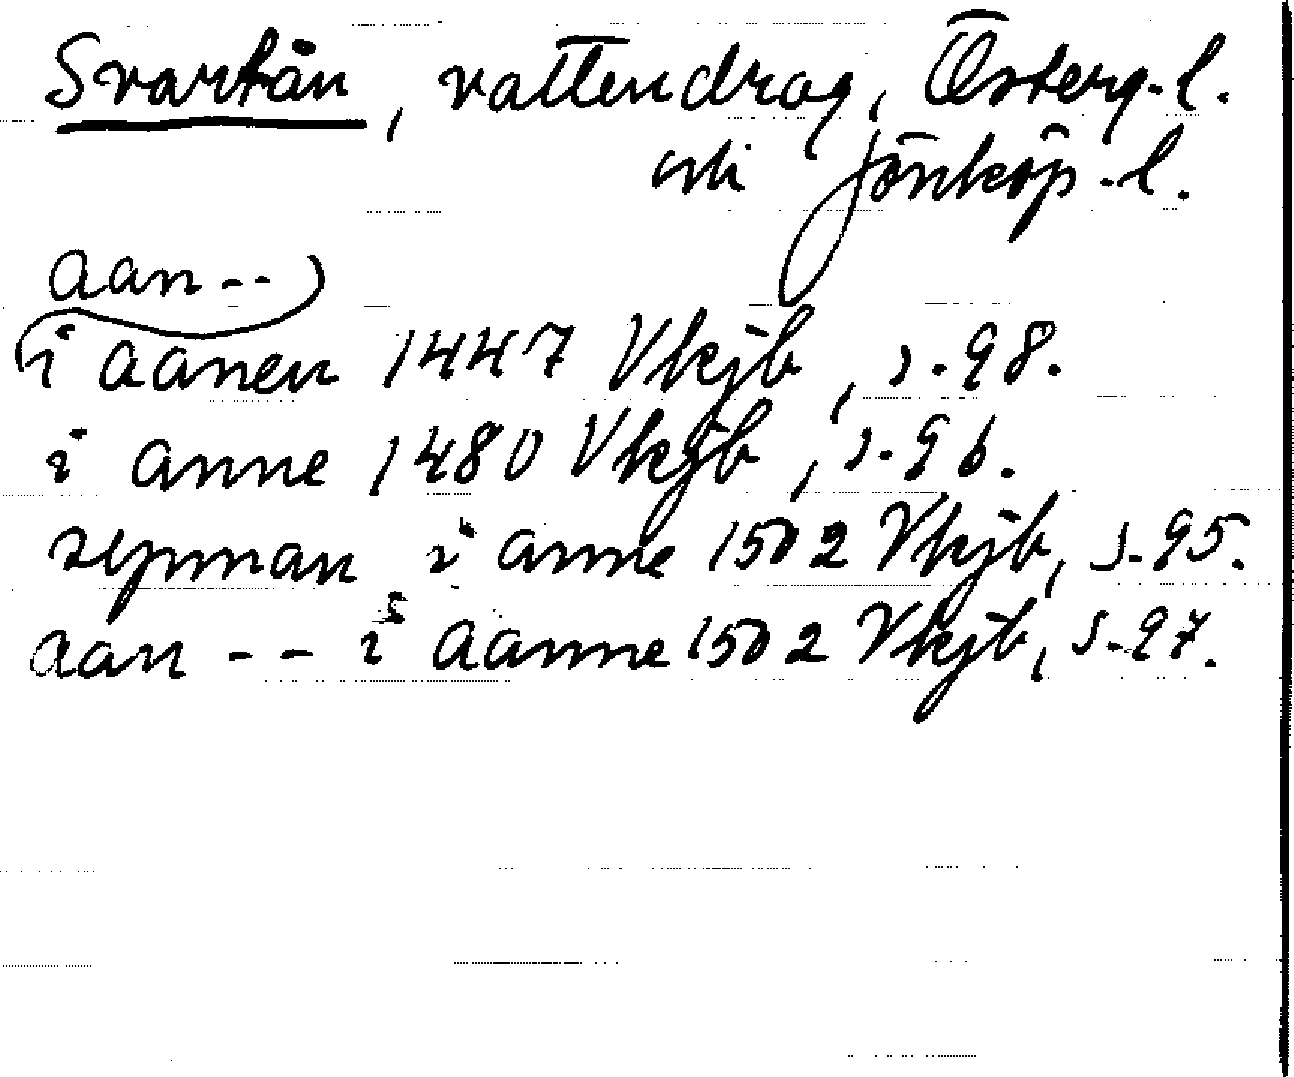 Svartån, vattendrag, Österg.l.
och Jönköp.l.
aan --
i aanen 1447 Vkjb, s.98.
i anne 1480 Vkjb, s.96.
synnan i anne 1502 Vkjb, s.95.
aan -- i aanne 1502 Vkjb, s.97.